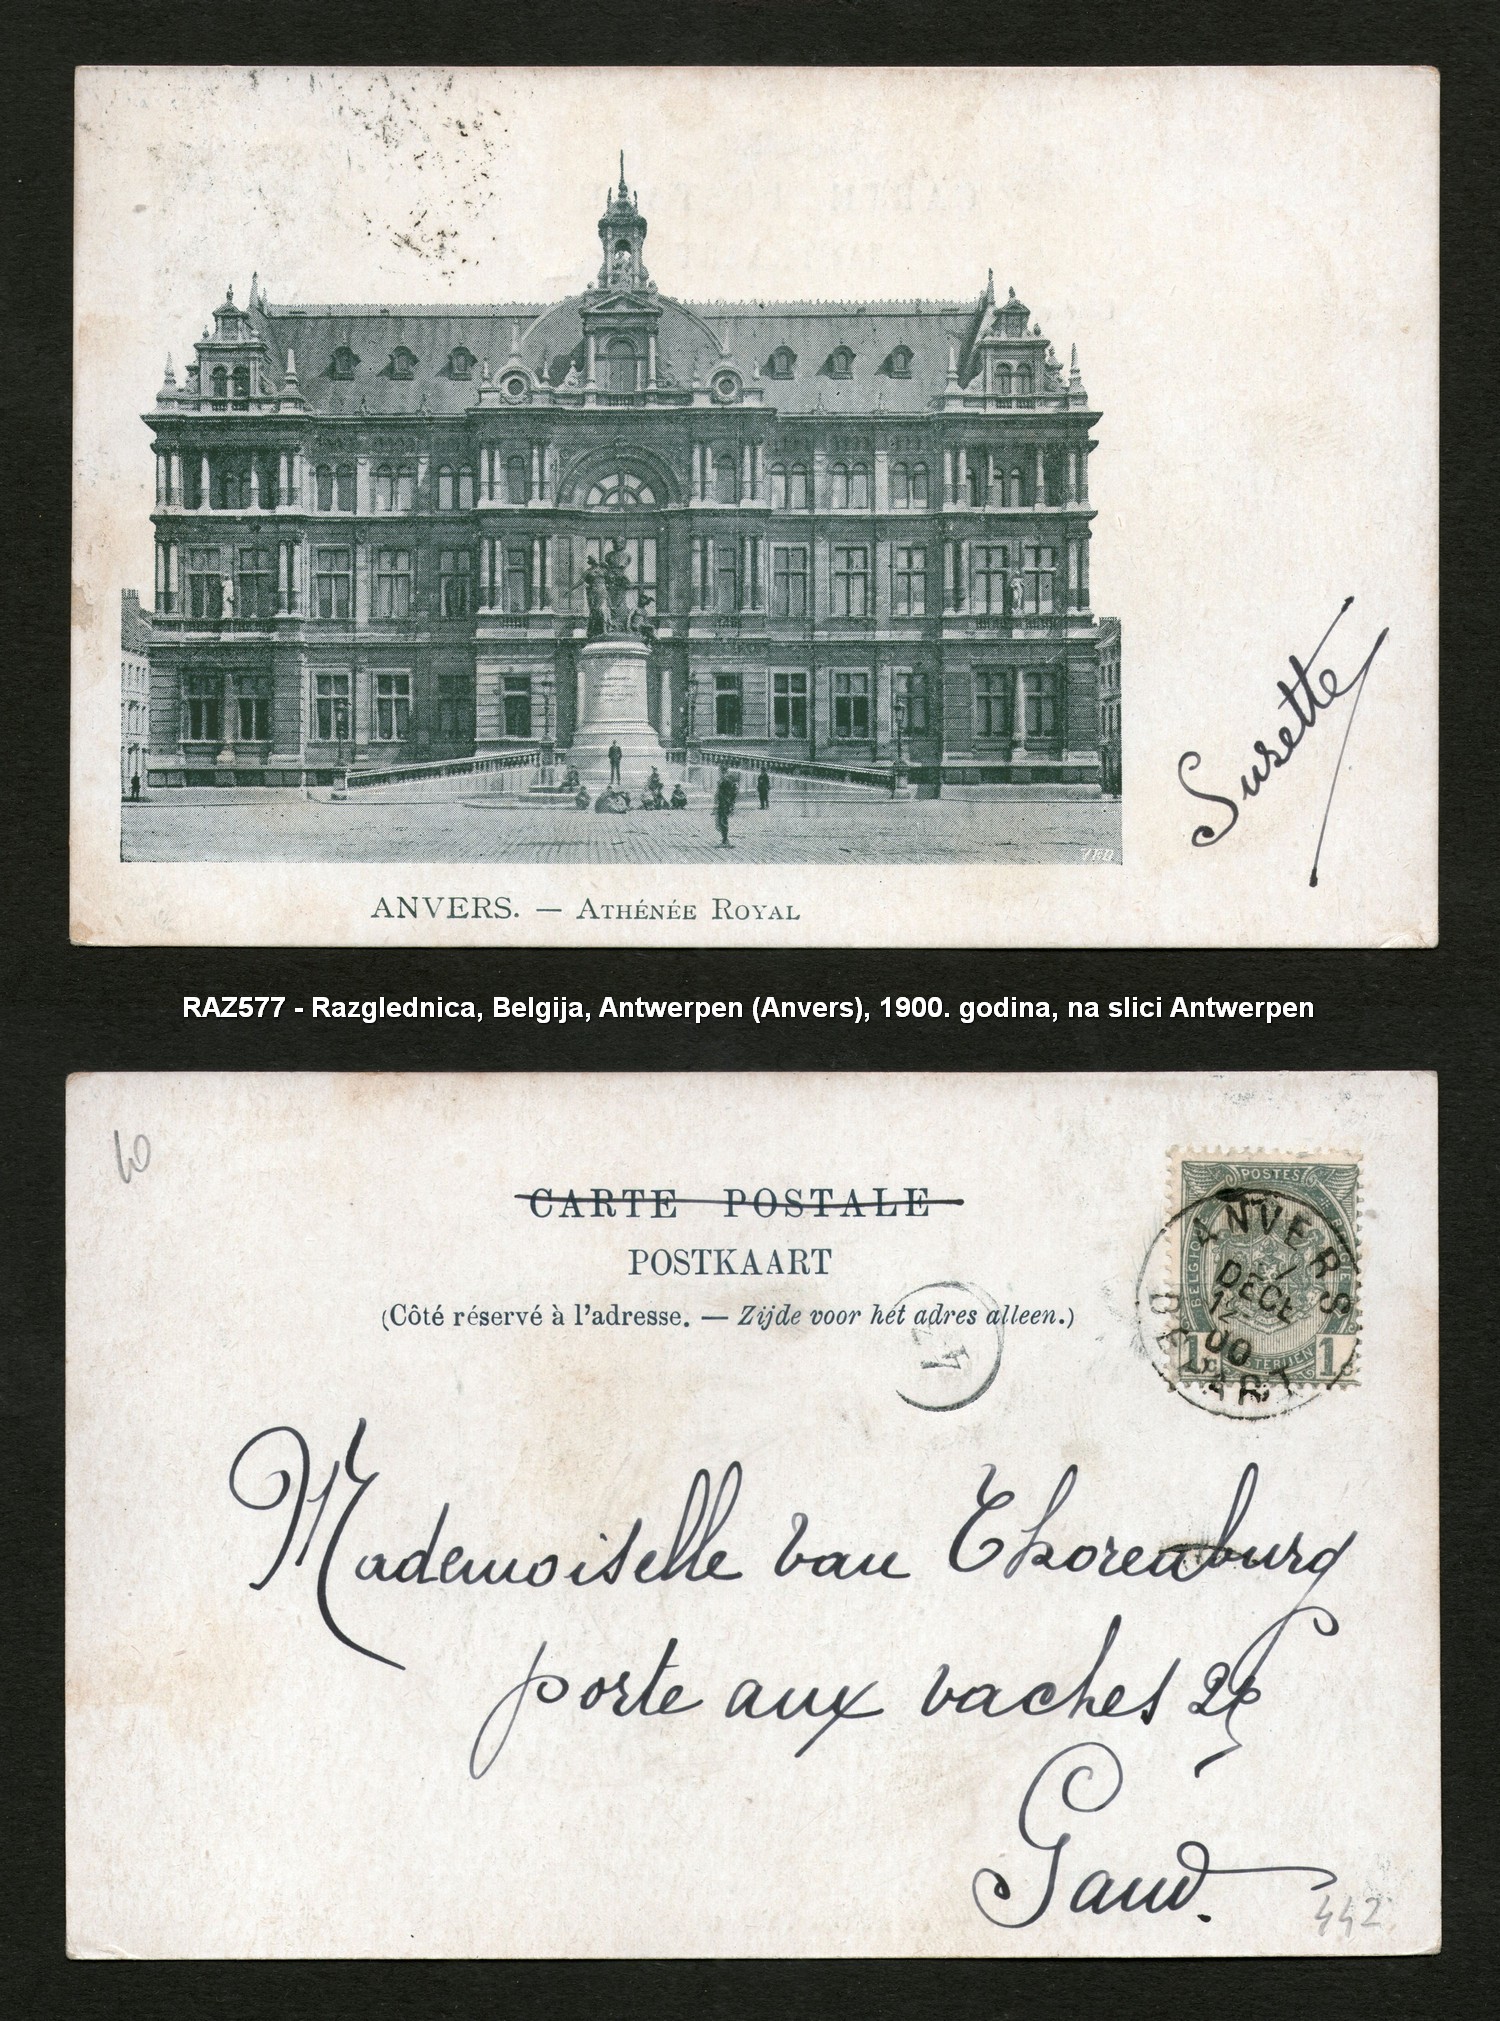 VED
ANVERS. — ATHÉNÉE ROYAL
Susette
RAZ577 - Razglednica, Belgija, Antwerpen (Anvers), 1900. godina, na slici Antwerpen
10
CARTE POSTALE
POSTKAART
(Côté réservé à l'adresse. — Zijde voor het adres alleen.)
POSTES
BELGIQUE
1c 1c
ANVERS
DECE
12
00
DÉPART
Mademoiselle van Thorenburg
porte aux vaches
Gand.
442